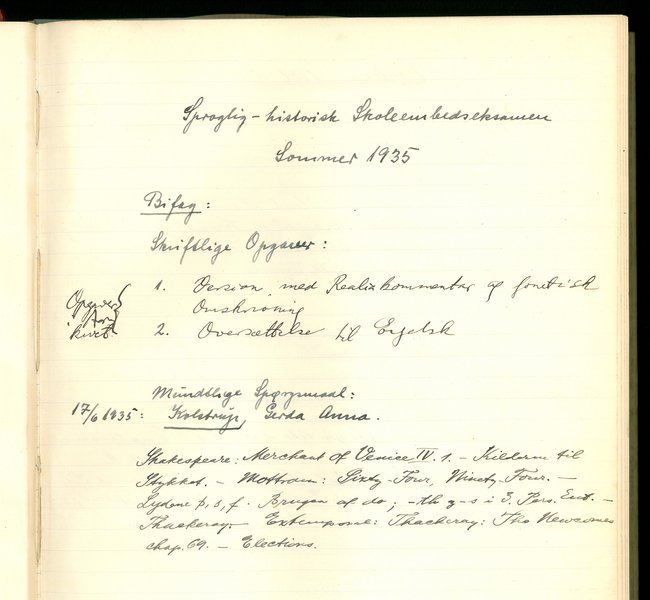 Sproglig-historisk Skoleembedseksamen
Sommer 1935
Bifag:
Skriftlige Opgaver:
1. Version med Realiakommentar og fonetisk
Omskrivning
2. Oversættelse til Engelsk
Mündtlige Spørgsmaal:
17/6 1935: Kolstrup, Gerda Anna.
Shakespeare: Merchant of Venice IV. 1. – Kilderne til
Stykket. – Mottram: Sixty-Four, Ninety-Four. –
Lydene þ, s, f. Brugen af do; -th og -s i 3. Pers. Ent. –
Thackeray. Extempore: Thackeray: The Newcomes
chap. 69. – Elections.